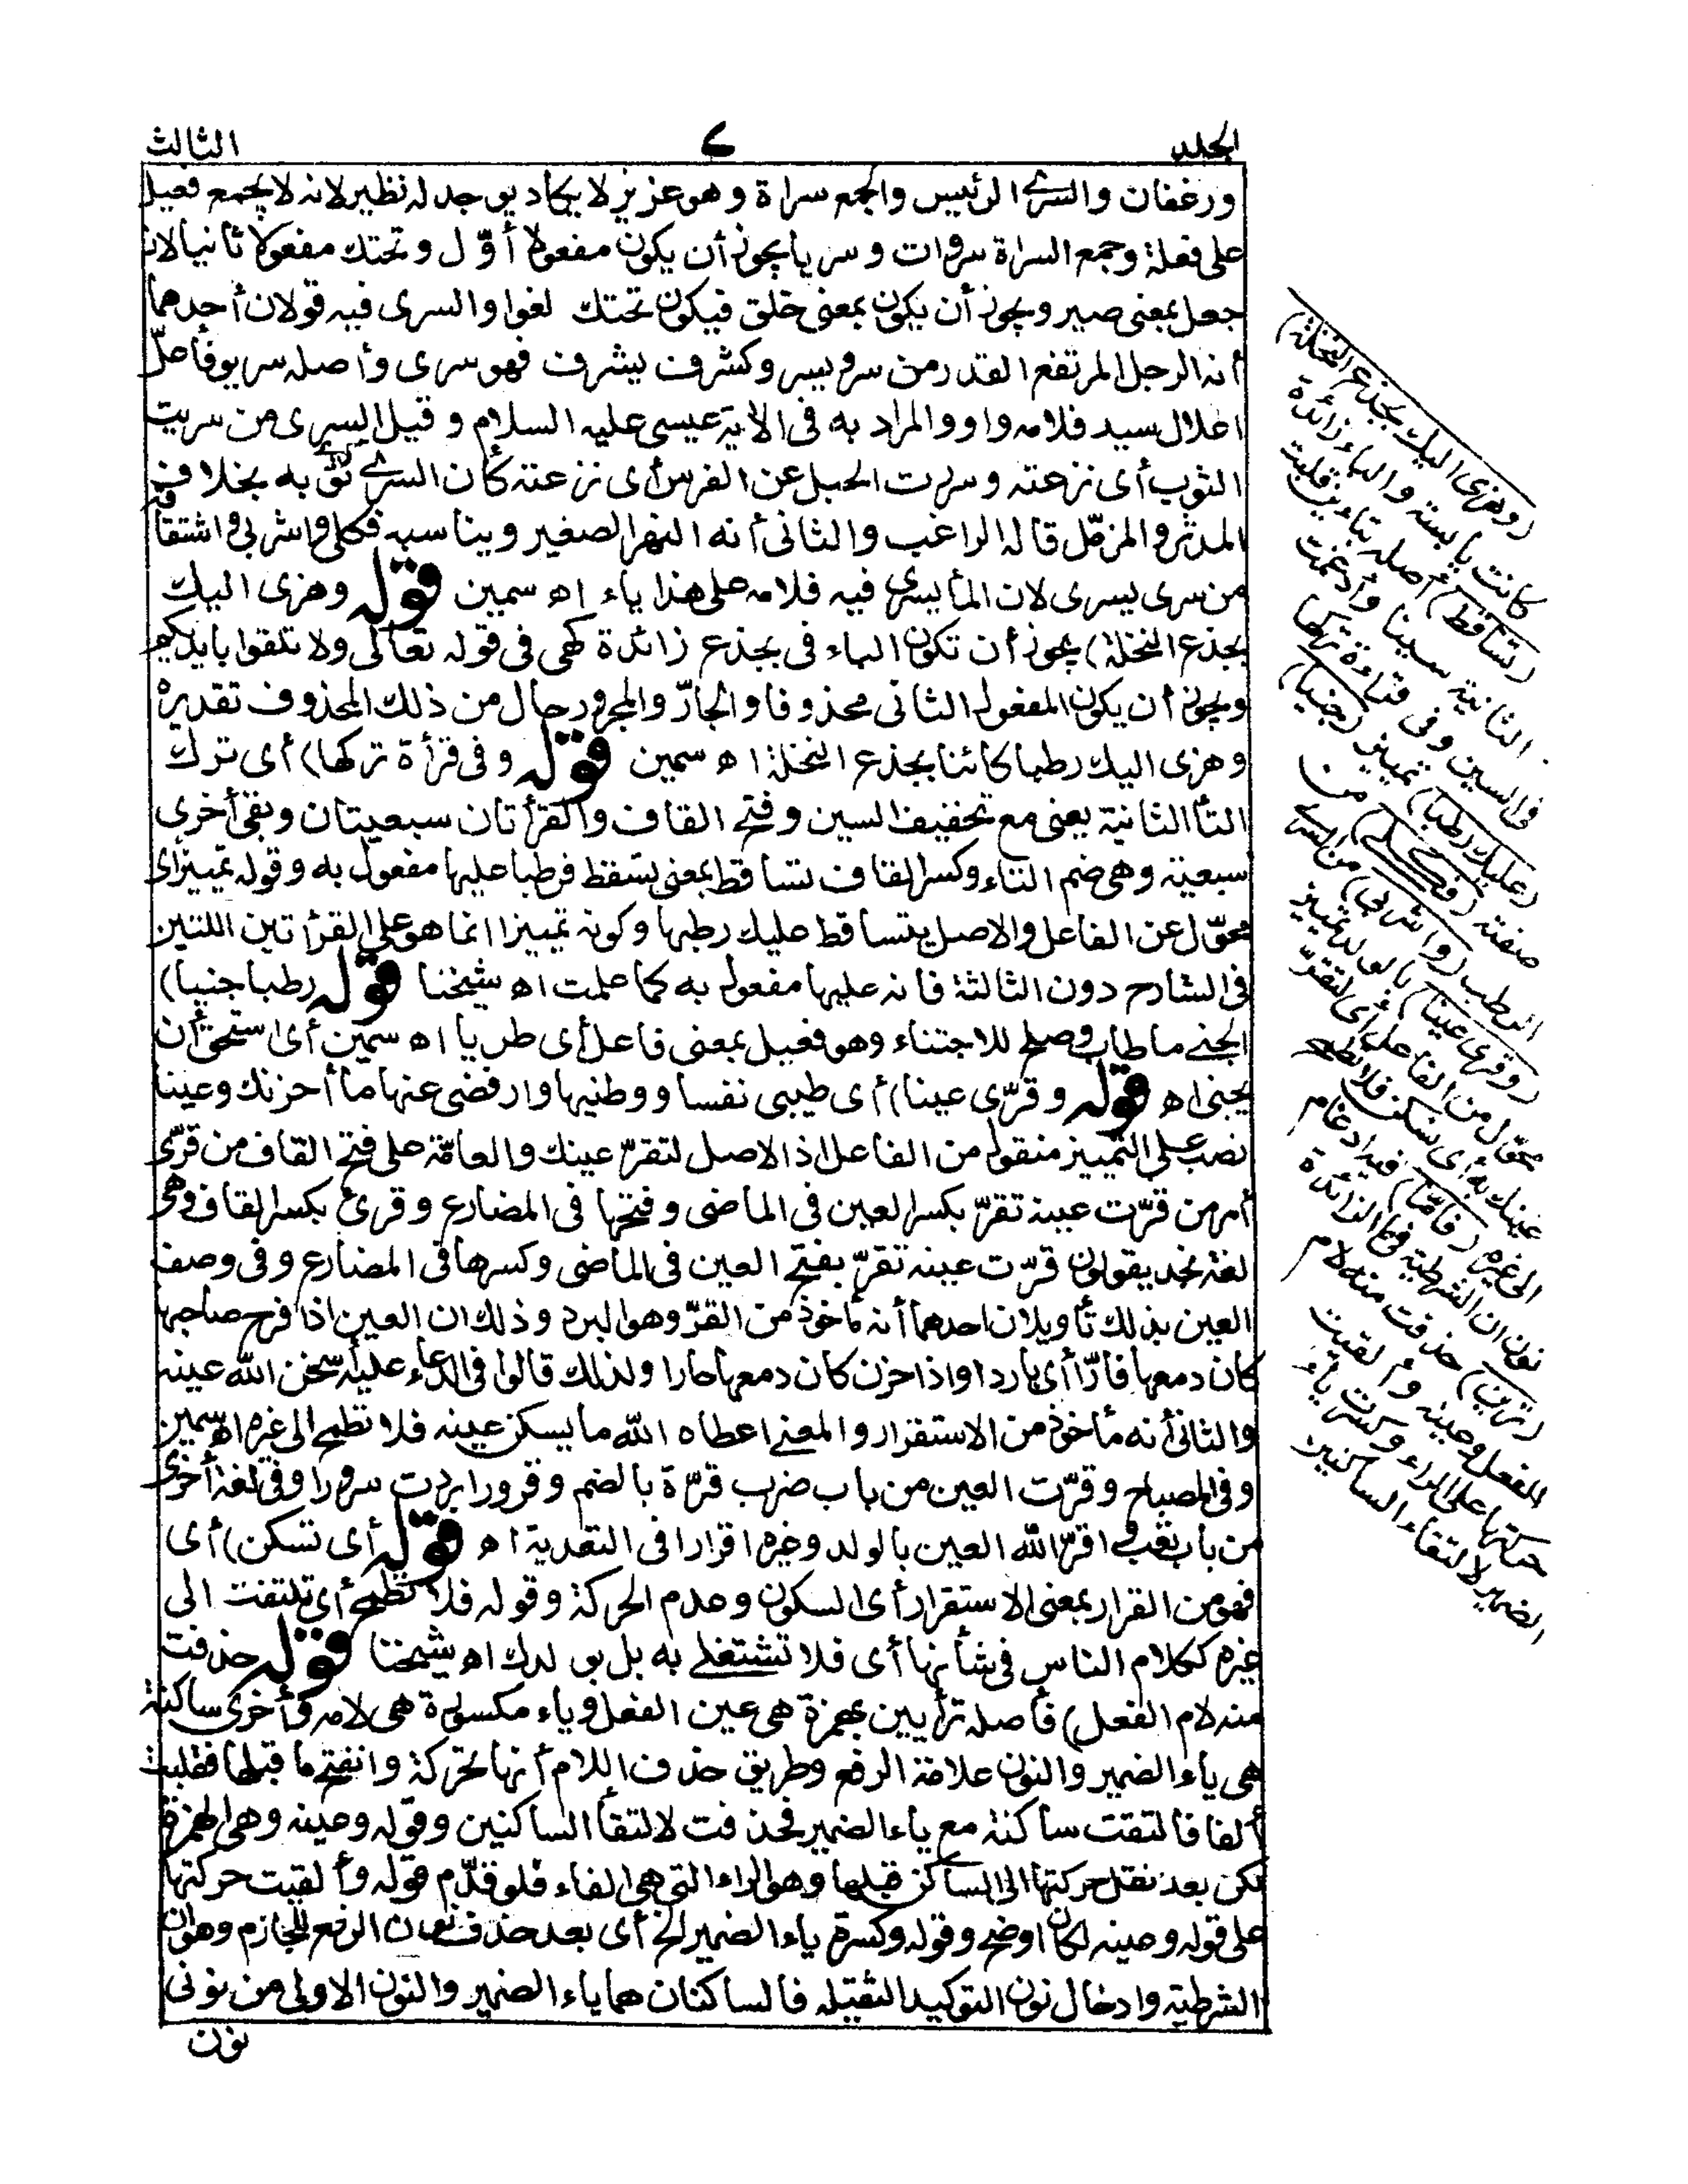 الجلد
٧
الثالث
ورغفان والسرى الرئيس والجمع سراة وهو عزيز لا يكاد يوجد له نظير لانه لا يجمع فعيل
على فعلة وجمع السراة سروات وسريا يجوز أن يكون مفعولا أوّل وتحتك مفعولا ثانيا لان
جعل بمعنى صير ويجوز أن يكون بمعنى خلق فيكون تحتك لغوا والسرى فيه قولان أحدهما
أنه الرجل المرتفع القدر من سرو يسرو كشرف يشرف فهو سرى وأصله سريو فأعلّ
اعلال سيد فلامه واو والمراد به فى الاية عيسى عليه السلام وقيل السرى من سريت
الثوب أى نزعته وسريت الحبل عن الفرس أى نزعته كأن السرى ثوبه بخلاف
المدثر والمزمّل قاله الراغب والثانى أنه النهر الصغير ويناسبه فكلى واشربى واشتقاقه
من سرى يسرى لان الماء يسرى فيه فلامه على هذا ياء اه سمين قوله وهزى اليك
بجذع النخلة) يجوز أن تكون الباء فى بجذع زائدة كهى فى قوله تعالى ولا تلقوا بايديكم
ويجوز أن يكون المفعول الثانى محذوفا والجارّ والمجرور حال من ذلك المحذوف تقديره
وهزى اليك رطبا كائنا بجذع النخلة اه سمين قوله وفى قرأة تركها) أى ترك
التأ الثانية يعنى مع تخفيف السين وفتح القاف والقرأتان سبعيتان وبقى أخرى
سبعية وهى ضم التاء وكسر القاف تساقط بمعنى تسقط فرطبا عليها مفعول به وقوله تمييز أى
محوّل عن الفاعل والاصل يتساقط عليك رطبها وكونه تمييزا انما هو على القرأتين اللتين
فى الشارح دون الثالثة فانه عليها مفعول به كما علمت اه شيخنا قوله رطبا جنيا)
الجنى ما طاب وصلح للاجتناء وهو فعيل بمعنى فاعل أى طريا اه سمين أى استحق أن
يجنى اه قوله وقرّى عينا) أى طيبى نفسا ووطنيها وارفضى عنها ما أحزنك وعينا
نصب على التمييز منقول من الفاعل اذ الاصل لتقرّ عينك والعامّة على فتح القاف من قرّى
أمر من قرّت عينه تقرّ بكسر العين فى الماضى وفتحها فى المضارع وقرئ بكسر القاف وهى
لغة نجد يقولون قرّت عينه تقرّ بفتح العين فى الماضى وكسرها فى المضارع وفى وصف
العين بذلك تأويلان احدهما أنه مأخوذ من القرّ وهو البرد وذلك ان العين اذا فرح صاحبها
كان دمعها قارّا أى باردا واذا حزن كان دمعها حارا ولذلك قالوا فى الدعاء عليه أسخن الله عينه
والثانى أنه مأخوذ من الاستقرار والمعنى اعطاه الله ما يسكن عينه فلا تطمح الى غيره اه سمين
وفى المصباح وقرّت العين من باب ضرب قرّة بالضم وقرورا بردت سرورا وفى لغة أخرى
من باب تعب واقرّ الله العين بالولد وغيره اقرارا فى التعدية اه قوله أى تسكن) أى
فهو من القرار بمعنى الاستقرار أى السكون وعدم الحركة وقوله فلا تطمح أى تلتفت الى
غيره ككلام الناس فى شأنها أى فلا تشتغلى به بل بولدك اه شيخنا قوله حذفت
منه لام الفعل) فأصله ترأيين بهمزة هى عين الفعل وياء مكسورة هى لامه وأخرى ساكنة
هى ياء الضمير والنون علامة الرفع وطريق حذف اللام أنها تحركة وانفتح ما قبلها فقلبت
ألفا فالتقت ساكنة مع ياء الضمير فحذفت لالتقأ الساكنين وقوله وعينه وهى الهمزة
لكن بعد نقل حركتها الى الساكن قبلها وهو الراء التى هى الفاء فلو قدّم قوله وألقيت حركتها
على قوله وعينه لكان اوضح وقوله وكسرة ياء الضمير الخ أى بعد حذف نون الرفع للجازم وهو ان
الشرطية وادخال نون التوكيد الثقيله فالساكنان هما ياء الضمير والنون الاولى من نونى
نون
(وهزى اليك بجذع النخلة)
كانت يابسة والباء زائدة
(تساقط) أصله بتاءين قلبت
الثانية سينا وأدغمت
فى السين وفى قراءة تركها
(عليك رطبا) تمييز (جنيا)
صفته (فكلى) من
الرطب (واشربى) من السرى
(وقرى عينا) بالولد تمييز
محوّل من الفاعل أى لتقرّ
عينك به أى تسكن فلا تطمح
الى غيره (فامّا) فيه ادغام
نون ان الشرطية فى ما الزائدة
(ترين) حذفت منه لام
الفعل وعينه والقيت
حركتها على الراء وكسرت ياء
الضمير لالتقاء الساكنين